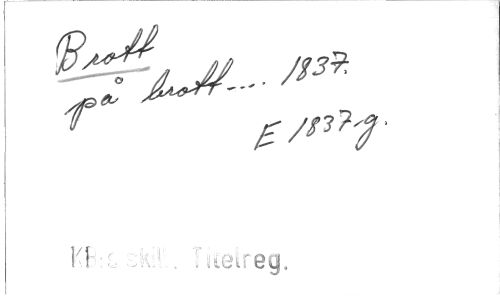 Brott
på brott.... 1837.
E 1837g.
KB:s skill. Titelreg.